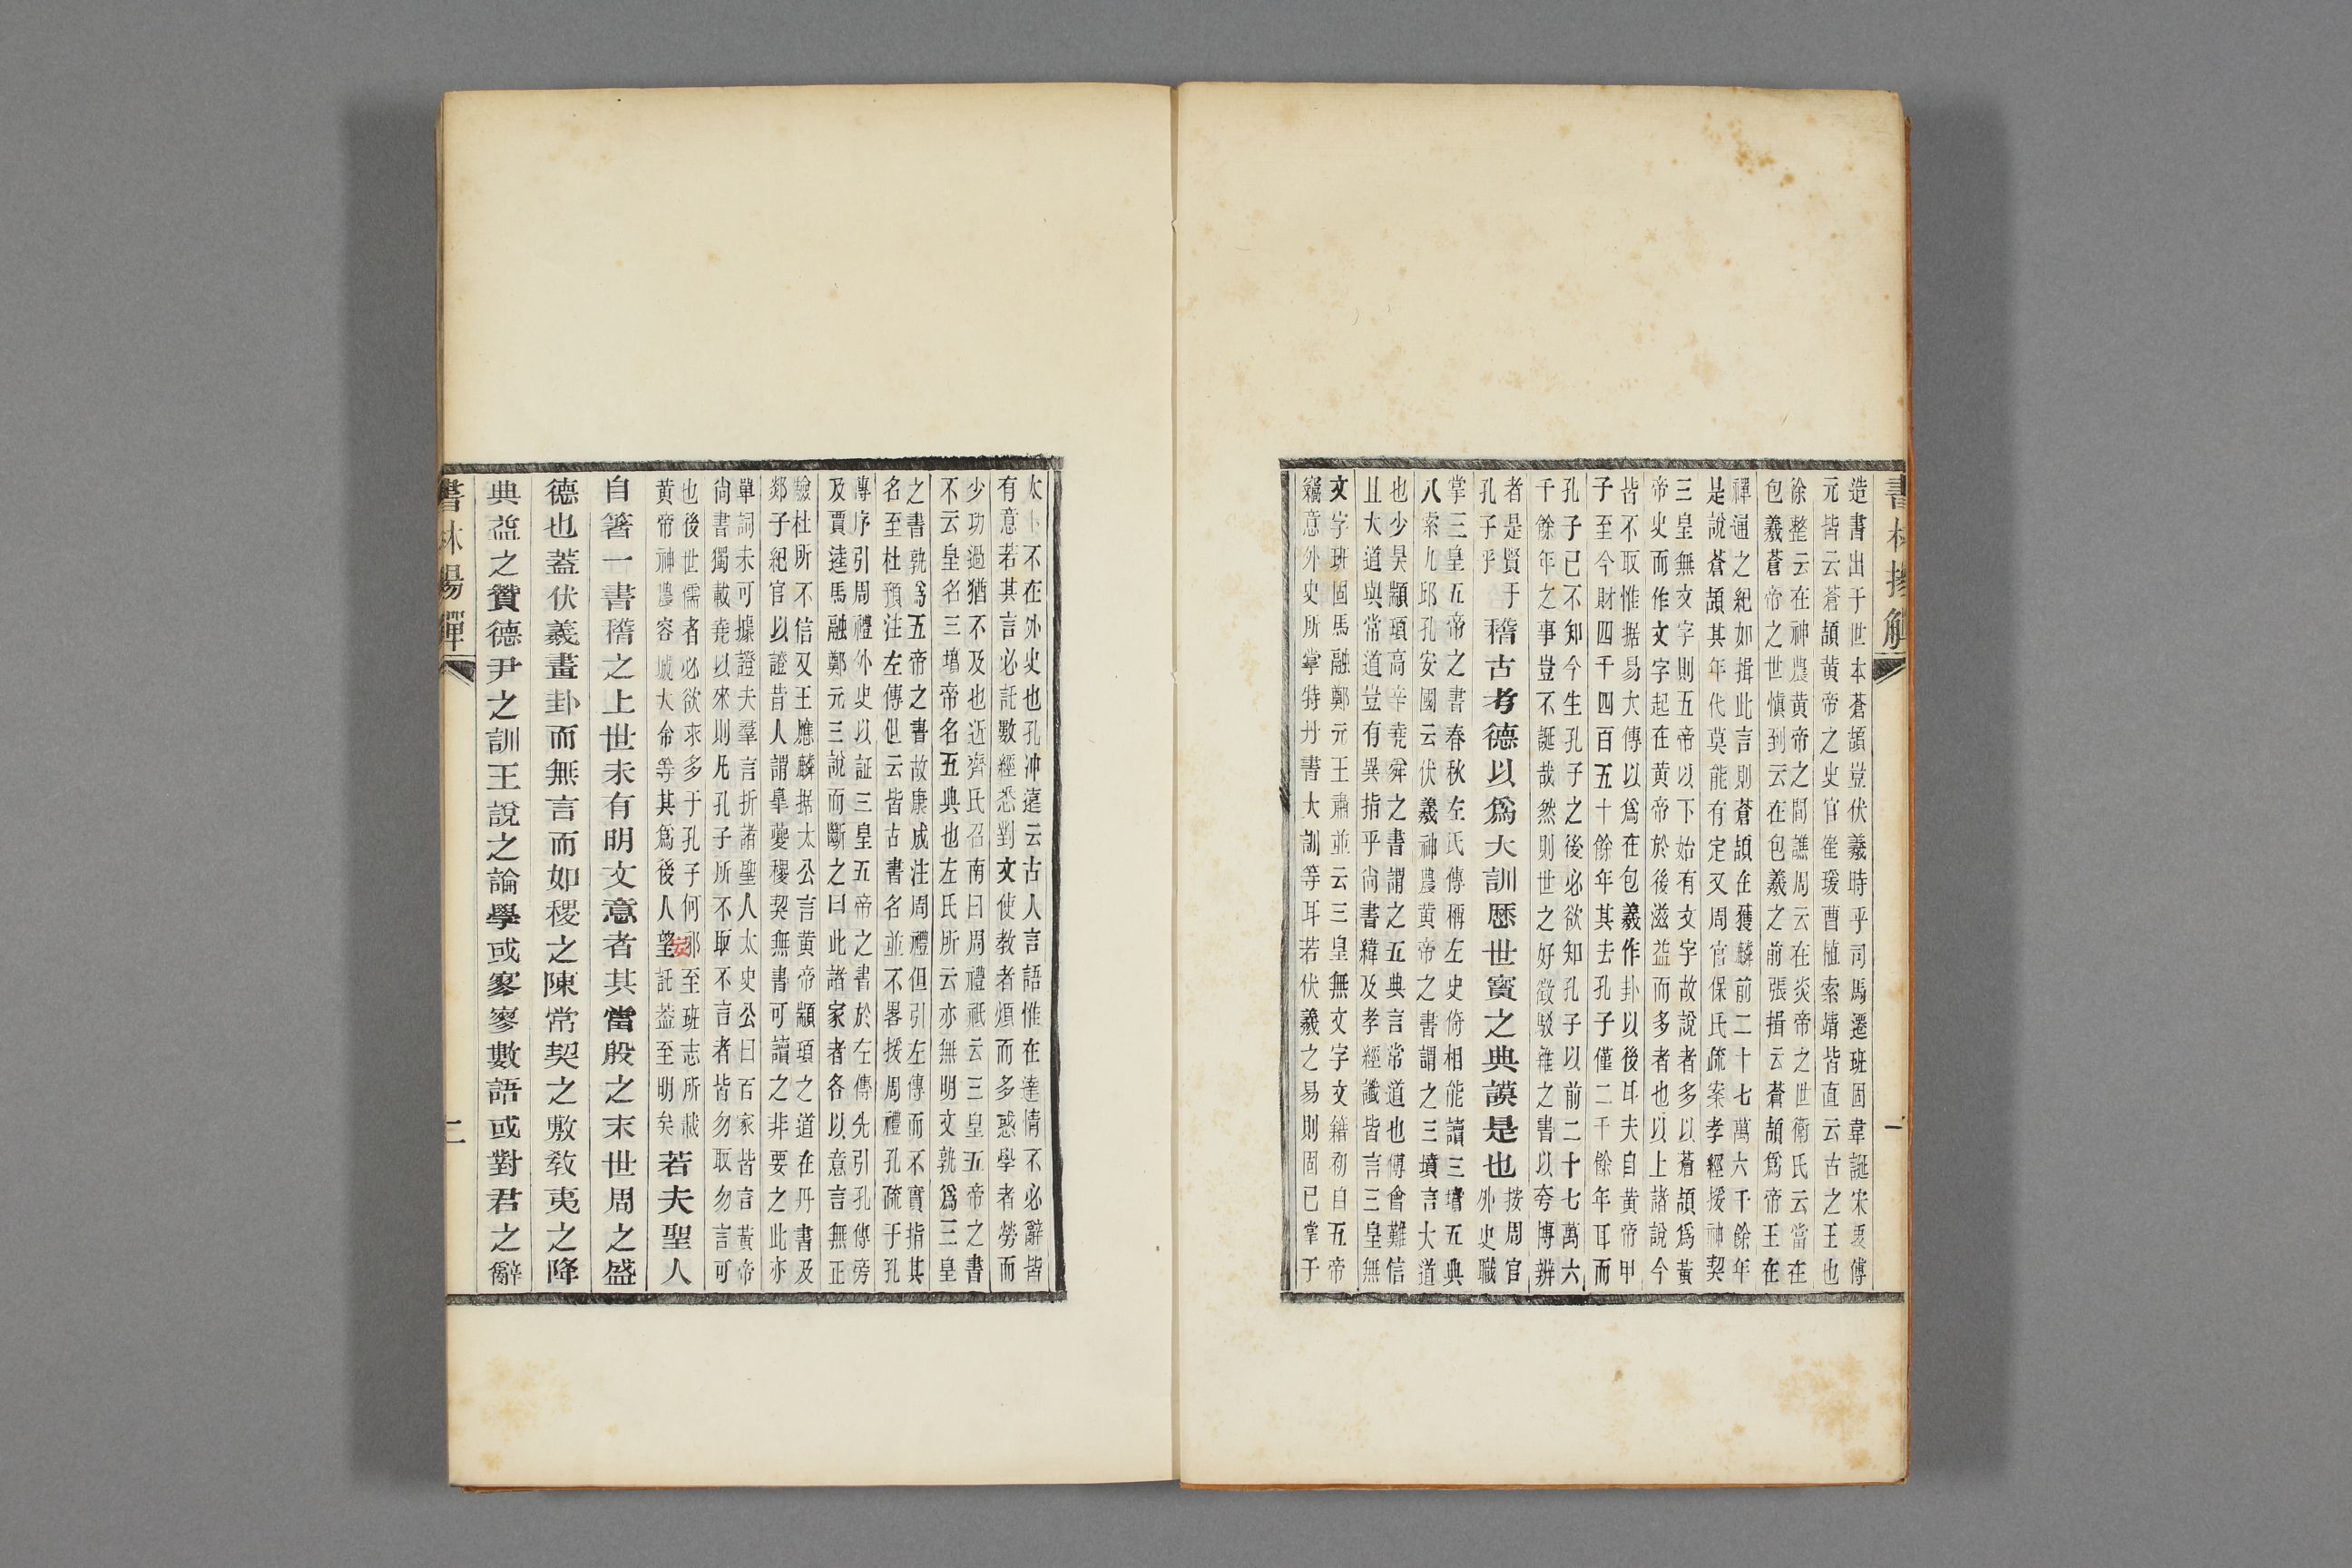 造書出于世本蒼頡豈伏羲時乎司馬遷班固韋誕宋衷傅
元皆云蒼頡黃帝之史官崔瑗曹植索靖皆直云古之王也
徐整云在神農黃帝之間譙周云在炎帝之世衛氏云當在
包羲蒼帝之世慎到云在包羲之前張揖云蒼頡爲帝王在
禪通之紀如揖此言則蒼頡在獲麟前二十七萬六千餘年
是說蒼頡其年代莫能有定又周官保氏疏案孝經援神契
三皇無文字則五帝以下始有文字故說者多以蒼頡爲黃
帝史而作文字起在黃帝於後滋益而多者也以上諸說今
皆不取惟据易大傳以爲在包羲作卦以後耳夫自黃帝甲
子至今財四千四百五十餘年其去孔子僅二千餘年耳而
孔子已不知今生孔子之後必欲知孔子以前二十七萬六
千餘年之事豈不誕哉然則世之好徵駁雜之書以夸博辨
者是賢于
孔子乎
稽古考德以爲大訓厯世寳之典謨是也
按周官
外史職
掌三皇五帝之書春秋左氏傳稱左史倚相能讀三墳五典
八索九邱孔安國云伏羲神農黃帝之書謂之三墳言大道
也少昊顓頊高辛堯舜之書謂之五典言常道也傅會難信
且大道與常道豈有異指乎尚書緯及孝經讖皆言三皇無
文字班固馬融鄭元王肅並云三皇無文字文籍初自五帝
竊意外史所掌特丹書大訓等耳若伏羲之易則固已掌于
太卜不在外史也孔沖遠云古人言語惟在達情不必辭皆
有意若其言必託數經悉對文使教者煩而多惑學者勞而
少功過猶不及也近齊氏召南曰周禮祇云三皇五帝之書
不云皇名三墳帝名五典也左氏所云亦無明文孰爲三皇
之書孰爲五帝之書故康成注周禮但引左傳而不實指其
名至杜預注左傳但云皆古書名並不畧援周禮孔疏于孔
傳序引周禮外史以証三皇五帝之書於左傳先引孔傳旁
及賈逵馬融鄭元三說而斷之曰此諸家者各以意言無正
驗杜所不信又王應麟据太公言黃帝顓頊之道在丹書及
郯子紀官以證昔人謂臯夔稷契無書可讀之非要之此亦
單詞未可據證夫羣言折諸聖人太史公曰百家皆言黃帝
尚書獨載堯以來則凡孔子所不取不言者皆勿取勿言可
也後世儒者必欲求多于孔子何邪至班志所載
黃帝神農容成大命等其爲後人妄託葢至明矣
若夫聖人
自箸一書稽之上世未有明文意者其當殷之末世周之盛
德也蓋伏羲畫卦而無言而如稷之陳常契之敷敎夷之降
典益之贊德尹之訓王說之論學或寥寥數語或對君之辭
二